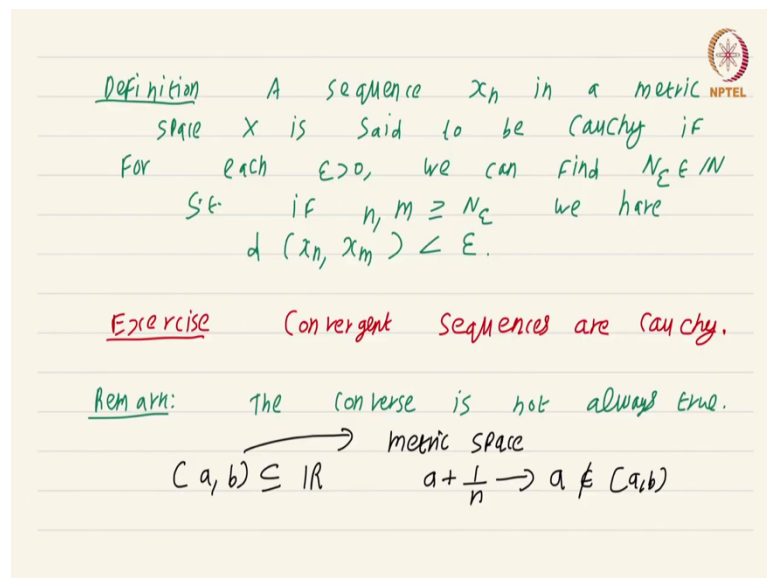 NPTEL
Definition A sequence xₙ in a metric
space X is said to be Cauchy if
For each ε>0, we can find N_ε ∈ ℕ
s.t. if n, m ≥ N_ε we have
d (xₙ, xₘ) < ε.
Exercise Convergent sequences are Cauchy.
Remark: The converse is not always true.
metric space
(a, b) ⊆ ℝ a + 1/n → a ∉ (a,b)